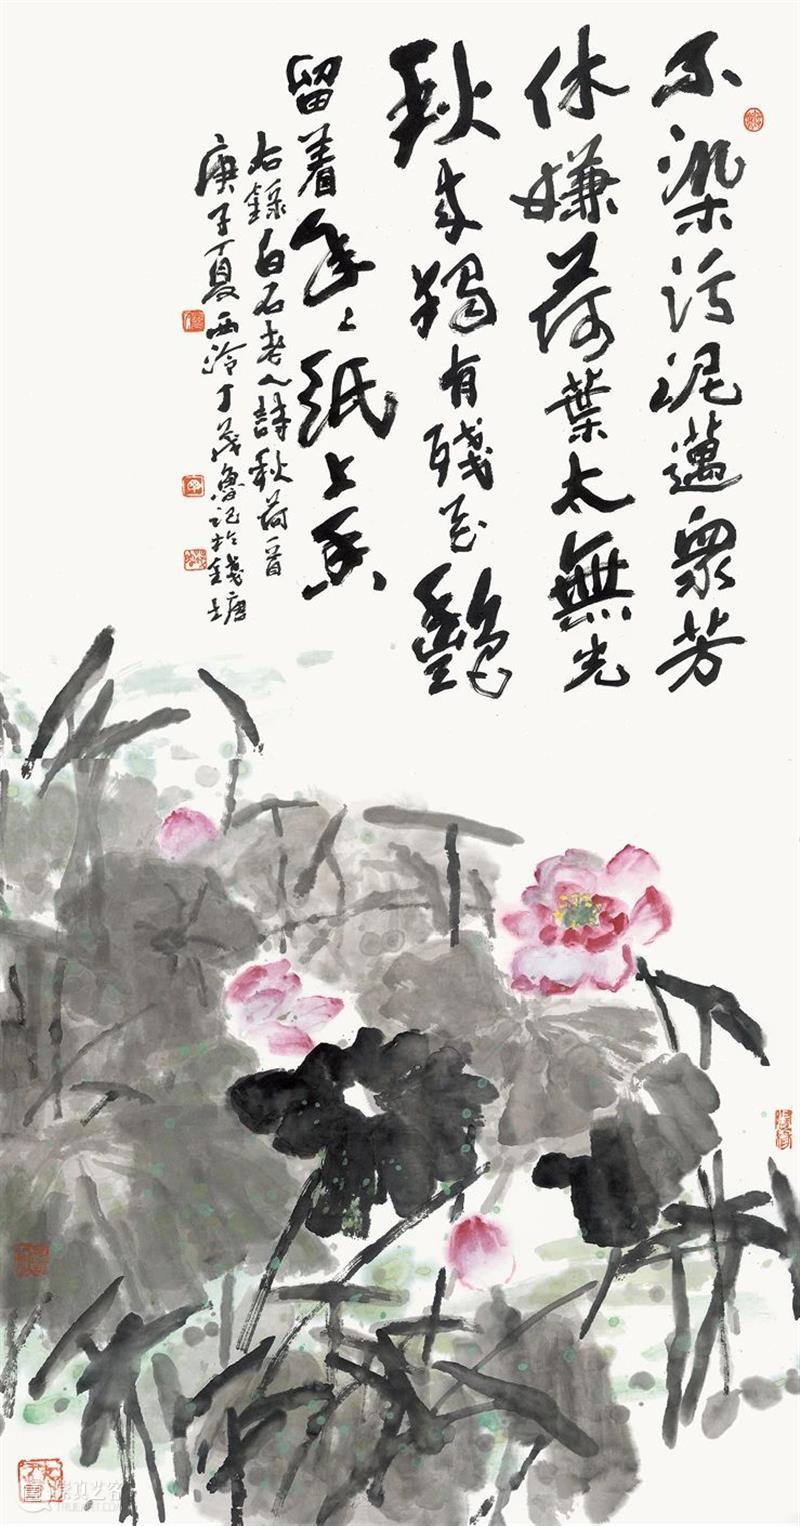 不染污泥邁眾芳
休嫌荷葉太無光
秋來獨有殘花艷
留着年々紙上香
右錄白石老人詩秋荷一首
庚子夏西泠丁茂魯記於錢塘
崇真艺客